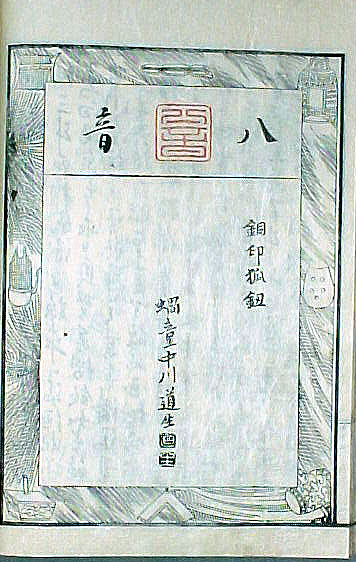 八音
銅印狐鈕
蝸壷中川道生